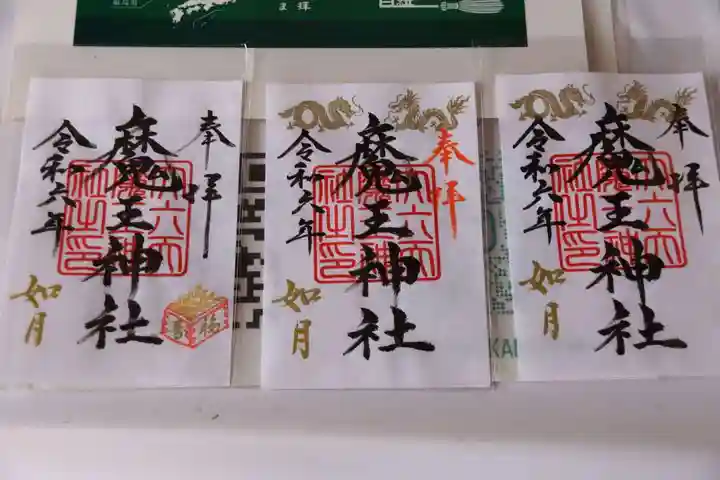 奉拝
魔王神社
令和六年
如月
福
奉拝
魔王神社
令和六年
如月
奉拝
魔王神社
令和六年
如月